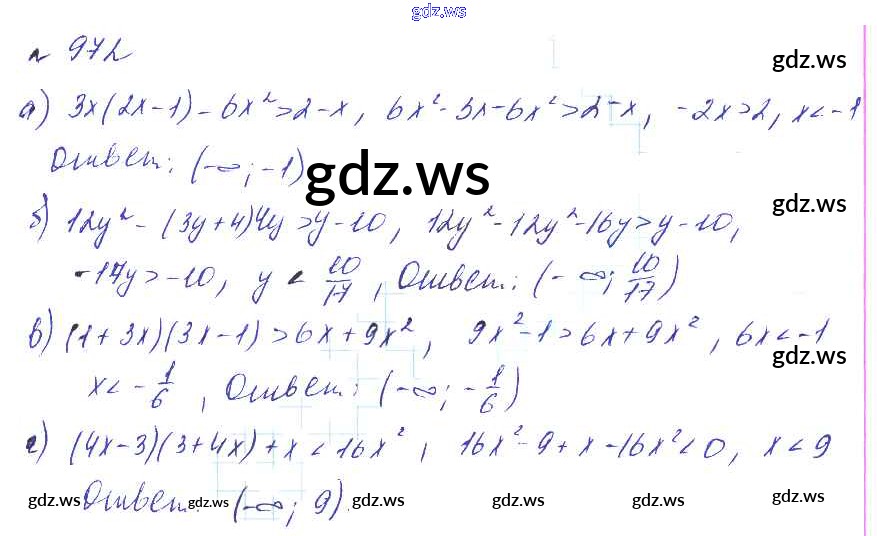 gdz.ws
№ 972
gdz.ws
а) 3x(2x-1)-6x²>2-x, 6x²-3x-6x²>2-x, -2x>2, x<-1
Ответ: (-∞; -1)
gdz.ws
gdz.ws
б) 12y²-(3y+4)4y>y-10, 12y²-12y²-16y>y-10,
-17y>-10, y < 10/17, Ответ: (-∞; 10/17)
в) (1+3x)(3x-1)>6x+9x², 9x²-1>6x+9x², 6x<-1
gdz.ws
x<-1/6, Ответ: (-∞; -1/6)
г) (4x-3)(3+4x)+x<16x², 16x²-9+x-16x²<0, x<9
Ответ: (-∞; 9).
gdz.ws gdz.ws gdz.ws gdz.ws gdz.ws